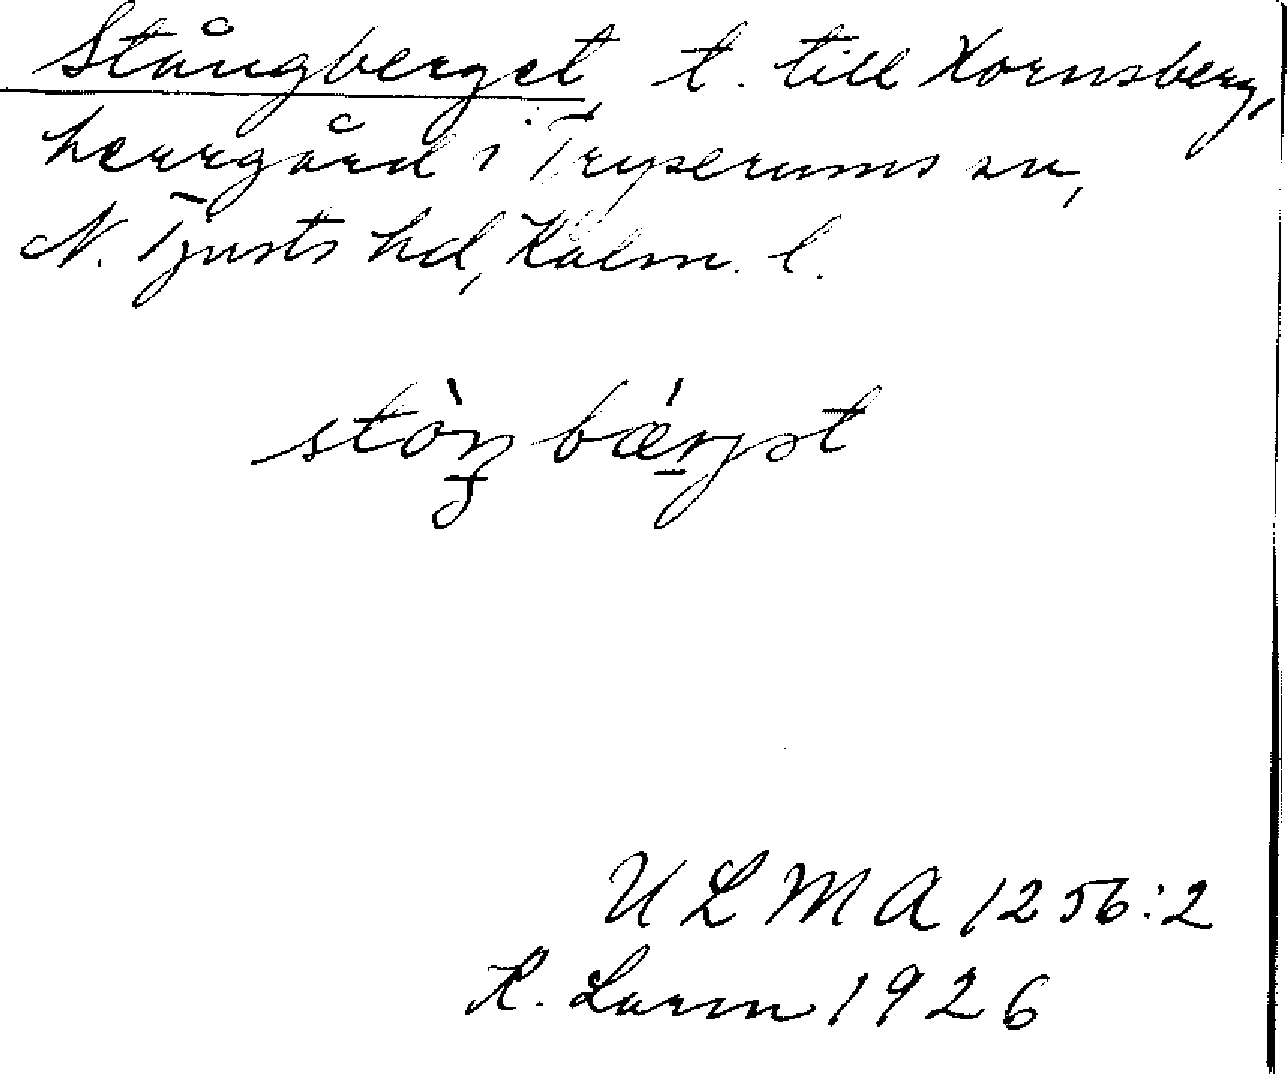 Stångberget, t. till Kornsberg,
herrgård i Tryserums sn,
N. Tjusts hd, Kalm. l.
ULMA 1256:2
K. Larm 1926